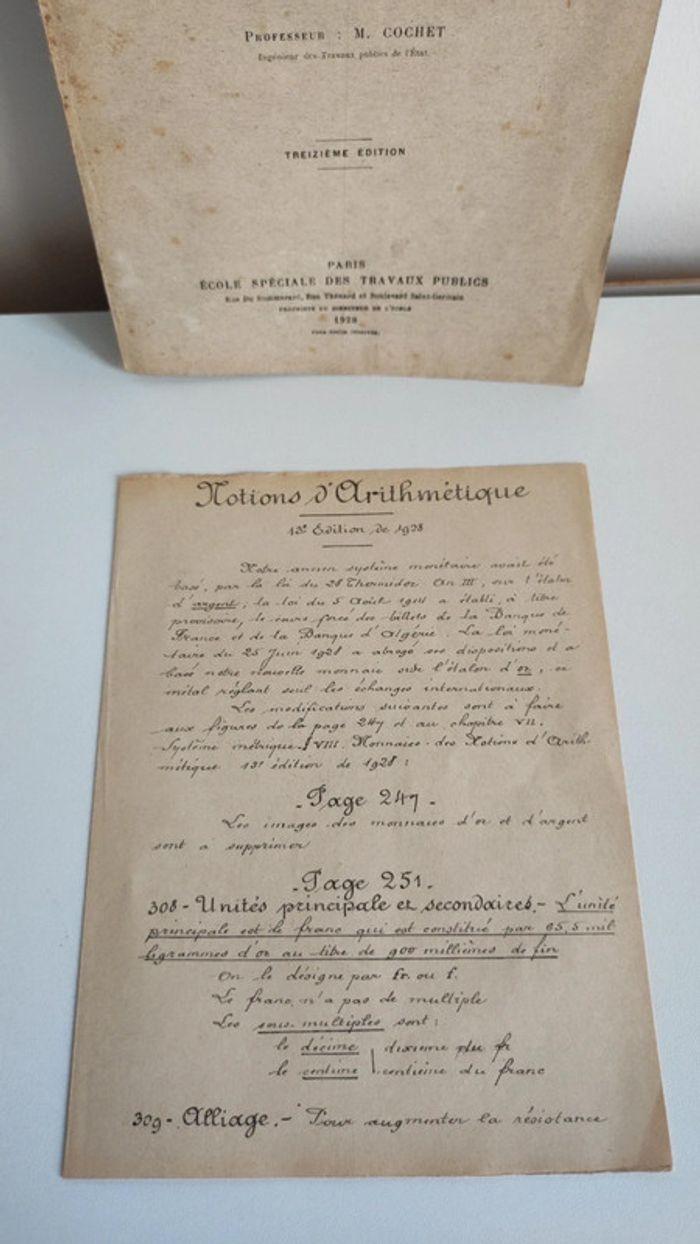 PROFESSEUR : M. COCHET
Ingénieur des Travaux publics de l'État.
TREIZIÈME ÉDITION
PARIS
ÉCOLE SPÉCIALE DES TRAVAUX PUBLICS
Rue Du Sommerard, Rue Thénard et Boulevard Saint-Germain
PROPRIÉTÉ DU DIRECTEUR DE L'ÉCOLE
1928
Tous droits réservés.
Notions d'Arithmétique
13e Édition de 1928
Notre ancien système monétaire avait été
basé, par la loi du 28 Thermidor An III, sur l'étalon
d'argent ; la loi du 5 Août 1914 a établi, à titre
provisoire, le cours forcé des billets de la Banque de
France et de la Banque d'Algérie. La loi moné-
taire du 25 Juin 1928 a abrogé ses dispositions et a
basé notre nouvelle monnaie sur l'étalon d'or, ce
métal réglant seul les échanges internationaux.
Les modifications suivantes sont à faire
aux figures de la page 247 et au chapitre VII.
Système métrique. § VIII. Monnaies - des Notions d'Arith-
métique 13e édition de 1928 :
- Page 247 -
Les images des monnaies d'or et d'argent
sont à supprimer
- Page 251 -
308 - Unités principale et secondaires. - L'unité
principale est le franc qui est constitué par 65,5 mil
ligrammes d'or au titre de 900 millièmes de fin
On le désigne par fr. ou f.
Le franc n'a pas de multiple
Les sous-multiples sont :
le décime dixième du fr
le centime centième du franc
309 - Alliage. - Pour augmenter la résistance